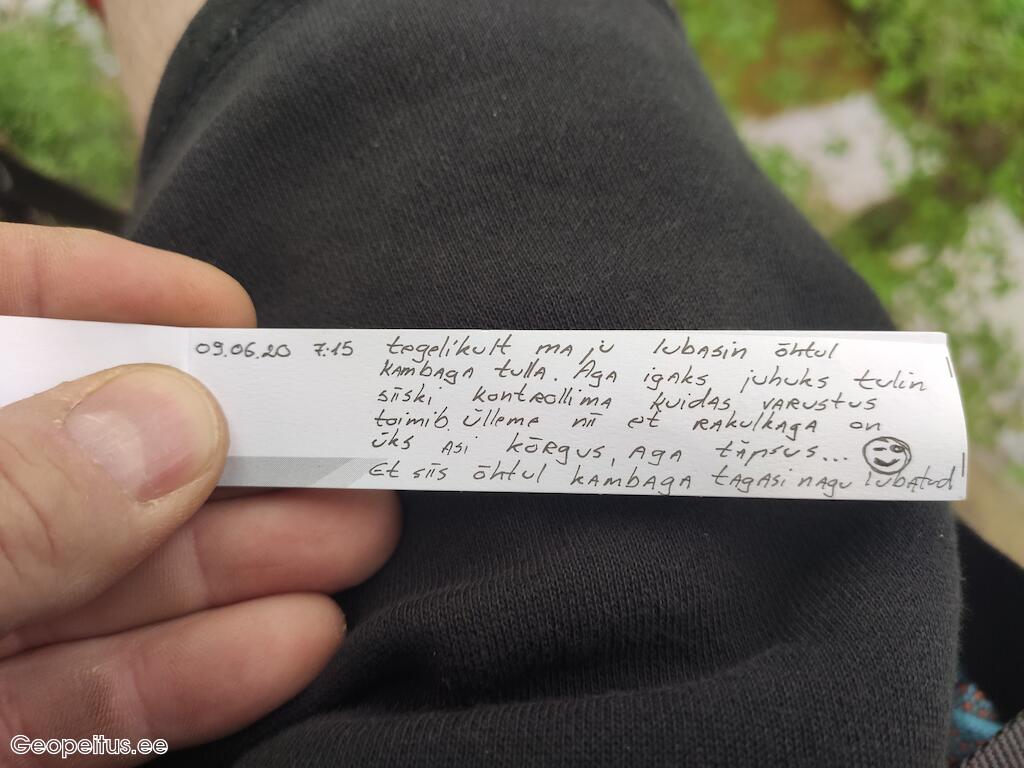 09.06.20 7:15 tegelikult ma ju lubasin õhtul
kambaga tulla. Aga igaks juhuks tulin
siiski kontrollima kuidas varustus
toimib. Ülleme nii et rakulkaga on
üks asi kõrgus, aga täpsus...
Et siis õhtul kambaga tagasi nagu lubatud
Geopeitus.ee